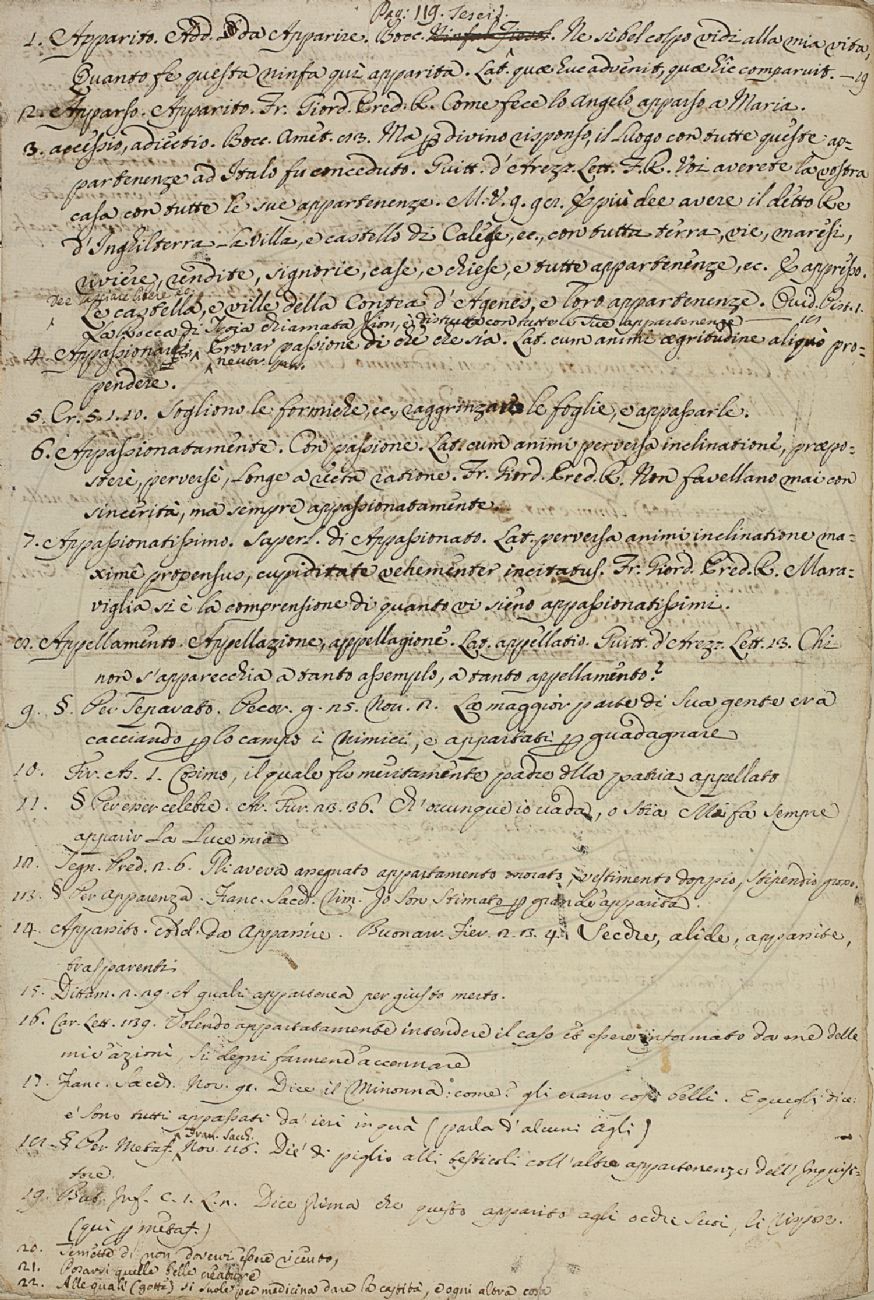 Pag: 119. Tesei.
1. Apparito. Add. da Apparire. Bocc. Ninfal. Fiesol. Ne sì bel colpo vidi alla mia vita,
Quanto fe questa ninfa quì apparita. Lat. quæ huc advenit, quæ hîc comparuit. — 19
2. Apparso. Apparito. Fr. Giord. Pred. R. Come fece lo Angelo apparso a Maria.
3. accessio, adiectio. Bocc. Amet. 83. Ma p divino risponso, il luogo con tutte queste ap-
partenenze ad Italo fu conceduto. Guitt. d'Arezz. Lett. F. R. Voi averete la vostra
casa con tutte le sue appartenenze. M. V. 9. 98. E più dee avere il detto Re
d'Inghilterra la villa, e castello di Calese, ec., con tutta terra, vie, maresi,
riviere, rendite, signorie, case, e chiese, e tutte appartenenze, ec. E appresso.
Dee lasciare libere ec.
Le castella, e ville della Contea d'Agenes, e loro appartenenze. Ovid. Pist. 1.
La Rocca di Troia chiamata Ilion, è distrutta con tutte le sue appartenenze — 18
4. Appassionarsi. Provar passione di che che sia. Lat. cum animi ægritudine aliquò pro-
neutr. pass.
pendere.
5. Cr. 5. 1. 10. Sogliono le formiche, ec., raggrinzare le foglie, e appassarle.
6. Appassionatamente. Con passione. Lat. cum animi perversa inclinatione, præpo-
sterè, perversè, longe a recta ratione. Fr. Giord. Pred. R. Non favellano mai con
sincerità, ma sempre appassionatamente.
7. Appassionatissimo. Superl. di Appassionato. Lat. perversa animi inclinatione ma-
ximè propensus, cupiditate vehementer incitatus. Fr. Giord. Pred. R. Mara-
viglia si è la comprensione di quanto vi sieno appassionatissimi.
8. Appellamento. Appellazione, appellagione. Lat. appellatio. Guitt. d'Arezz. Lett. 13. Chi
non s'apparecchia a tanto assemplo, a tanto appellamento?
9. §. Per Separato. Pecor. g. 25. Nov. 2. La maggior parte di sua gente era
cacciando p lo campo i Nimici, e appartati p guadagnare
10. Fir. As. 1. Cosimo, il quale fu meritamente padre dlla patria appellato
11. § Per esser celebre. Ar. Fur. 23. 36. Ch'ovunque io vada, o stia Mi fa sempre
apparir la luce mia
12. Segn. Pred. 2. 6. Gli aveva assegnato appartamento onorato, vestimento doppio, stipendio grosso.
13. § Per Apparenza. Franc. Sacch. Rim. Io son stimato p grande apparita.
14. Appassito. Add. da Appassire. Buonarr. Fier. 2. 3. 4. Secche, alide, appassite,
trasparenti
15. Dittam. 2. 29. A quali appartenea per giusto merto.
16. Car. Lett. 139. Volendo appartatamente intendere il caso ed essere informato da me delle
mie azioni, si degni farmene accennare
17. Franc. Sacch. Nov. 91. Dice il Minonna: come? gli erano così belli. E quegli dice:
e' sono tutti appassati da ieri in quà (parla d'alcuni agli)
18. § Per Metaf. Franc. Sacch. Nov. 116. Diè di piglio alli testicoli coll'altre appartenenze dell'Inquisi-
tore.
19. But. Inf. c. 1. l. 2. Dice prima che questo apparito agli occhi suoi, li rispose.
(quì p metaf.)
20. Temette di non doversi essere vicento,
21. Posarsi quelle belle creature
22. Alle quali (gotte) si suole per medicina dare la castità, e ogni altra cosa